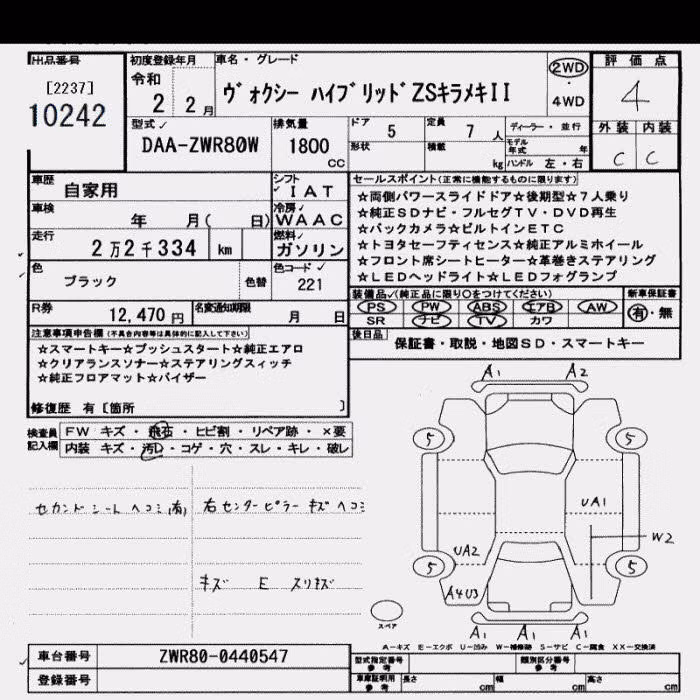 出品番号
[2237]
10242
初度登録年月
令和
2 2月
車名・グレード
ヴォクシー ハイブリッドZSキラメキII
2WD
・
4WD
評価点
4
外装 内装
C C
型式✓
DAA-ZWR80W
排気量
1800
CC
ドア 5
定員 7人
ディーラー・並行
形状
積載 kg
モデル年式 年
ハンドル 左・右
車歴 自家用
シフト✓
IAT
車検 年 月( 日)
冷房✓
WAAC
走行 2万2千334 km
燃料✓
ガソリン
色 ブラック 色替
色コード✓
221
R券 12,470円
名変通知期限 月 日
セールスポイント(正常に機能するものに限ります)
☆両側パワースライドドア☆後期型☆7人乗り
☆純正SDナビ・フルセグTV・DVD再生
☆バックカメラ☆ビルトインETC
☆トヨタセーフティセンス☆純正アルミホイール
☆フロント席シートヒーター☆革巻きステアリング
☆LEDヘッドライト☆LEDフォグランプ
装備品✓(純正品に限り○をつけてください)
PS PW ABS エアB AW
SR ナビ TV カワ
新車保証書
有・無
後日品
保証書・取説・地図SD・スマートキー
注意事項申告欄(不具合内容等は具体的に記入して下さい)
☆スマートキー☆プッシュスタート☆純正エアロ
☆クリアランスソナー☆ステアリングスィッチ
☆純正フロアマット☆バイザー
修復歴 有〔箇所 〕
検査員記入欄
FW キズ・飛石・ヒビ割・リペア跡・×要
内装 キズ・汚れ・コゲ・穴・スレ・キレ・破レ
セカンドシートヘコミ(有)
右センターピラーキズヘコミ
キズ E スリキズ
A1 A2
5 5
UA1
W2
UA2
5 5
A4U3
A1 A1 A1
スペア
A-キズ E-エクボ U-凹み W-補修跡 S-サビ C-腐食 XX-交換済
車台番号 ZWR80-0440547
登録番号
型式指定番号 参考
類別区分番号 参考
車庫証明用 参考
長さ cm 幅 cm 高さ cm